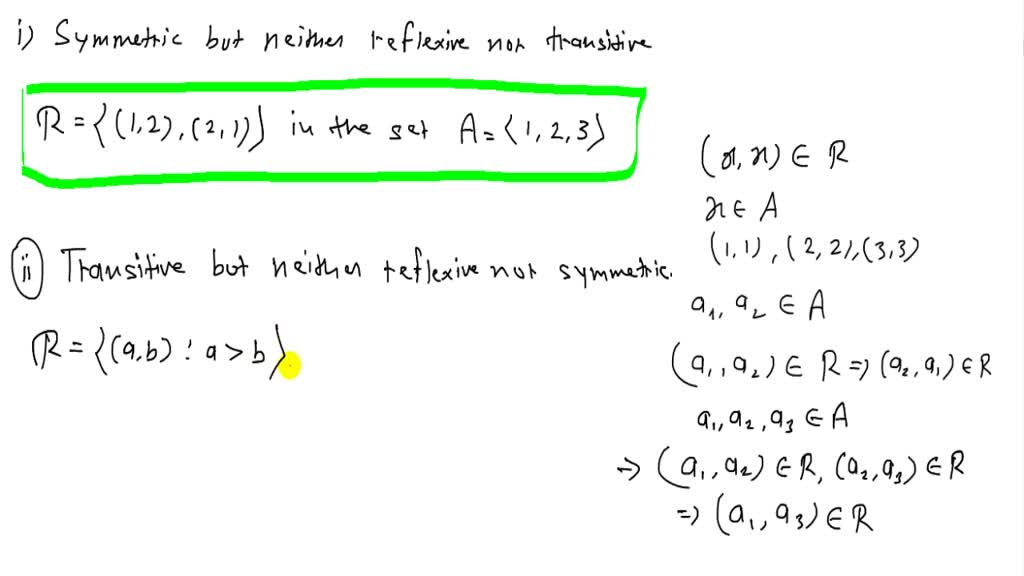 i) Symmetric but neither reflexive nor transitive
R = {(1,2), (2,1)} in the set A = {1, 2, 3}
(x, x) ∈ R
x ∈ A
(1,1), (2,2), (3,3)
ii) Transitive but neither reflexive not symmetric.
R = {(a,b) : a > b}
a₁, a₂ ∈ A
(a₁, a₂) ∈ R ⇒ (a₂, a₁) ∈ R
a₁, a₂, a₃ ∈ A
→ (a₁, a₂) ∈ R, (a₂, a₃) ∈ R
⇒ (a₁, a₃) ∈ R